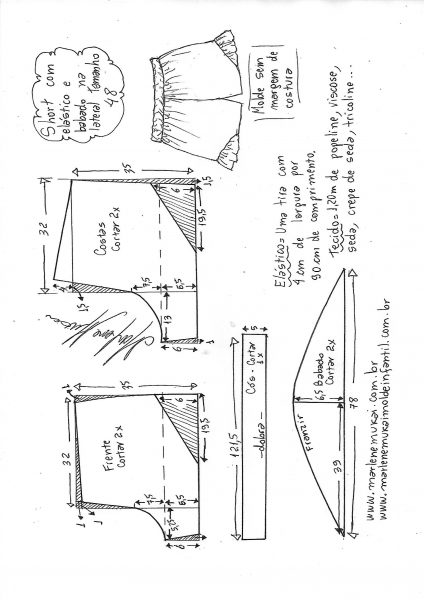 Short com
elástico e
babado na
lateral Tamanho
48
Molde sem
margem de
costura
Elástico = Uma tira com
4 cm de largura por
90 cm de comprimento.
Tecido = 1,20m de popeline, viscose,
seda, crepe de seda, tricoline...
32
35
Costas
Cortar 2x
6
1,5
19,5
7,5
6,5
13
6
1
4
32
35
Frente
Cortar 2x
6
19,5
7,5
6,5
5,0
6
1
1
121,5
5
Cós - Cortar
1x
dobra
Franzir
6,5 Babado
Cortar 2x
39
78
www.marlenemukai.com.br
www.marlenemukaimoldeinfantil.com.br